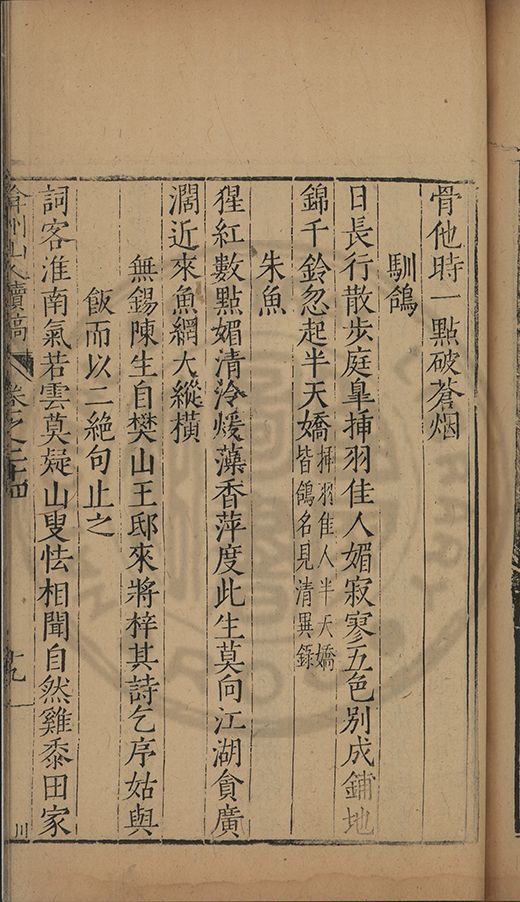 骨他時一點破蒼烟
馴鴿
日長行散步庭臯揷羽佳人媚寂寥五色别成鋪地
錦千鈴忽起半天嬌揷羽佳人半天嬌
皆鴿名見清異錄
朱魚
猩紅數點媚清泠煖藻香萍度此生莫向江湖貪廣
濶近來魚網大縱横
無錫陳生自樊山王邸來將梓其詩乞序姑與
飯而以二絶句止之
詞客淮南氣若雲莫疑山叟怯相聞自然雞黍田家
弇州山人續稿
卷之二十四
十九
川